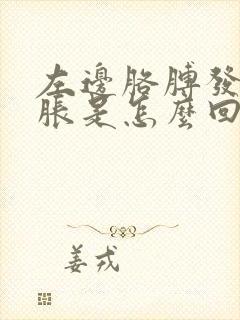 左邊胳膊發
脹是怎麼回
姜戎